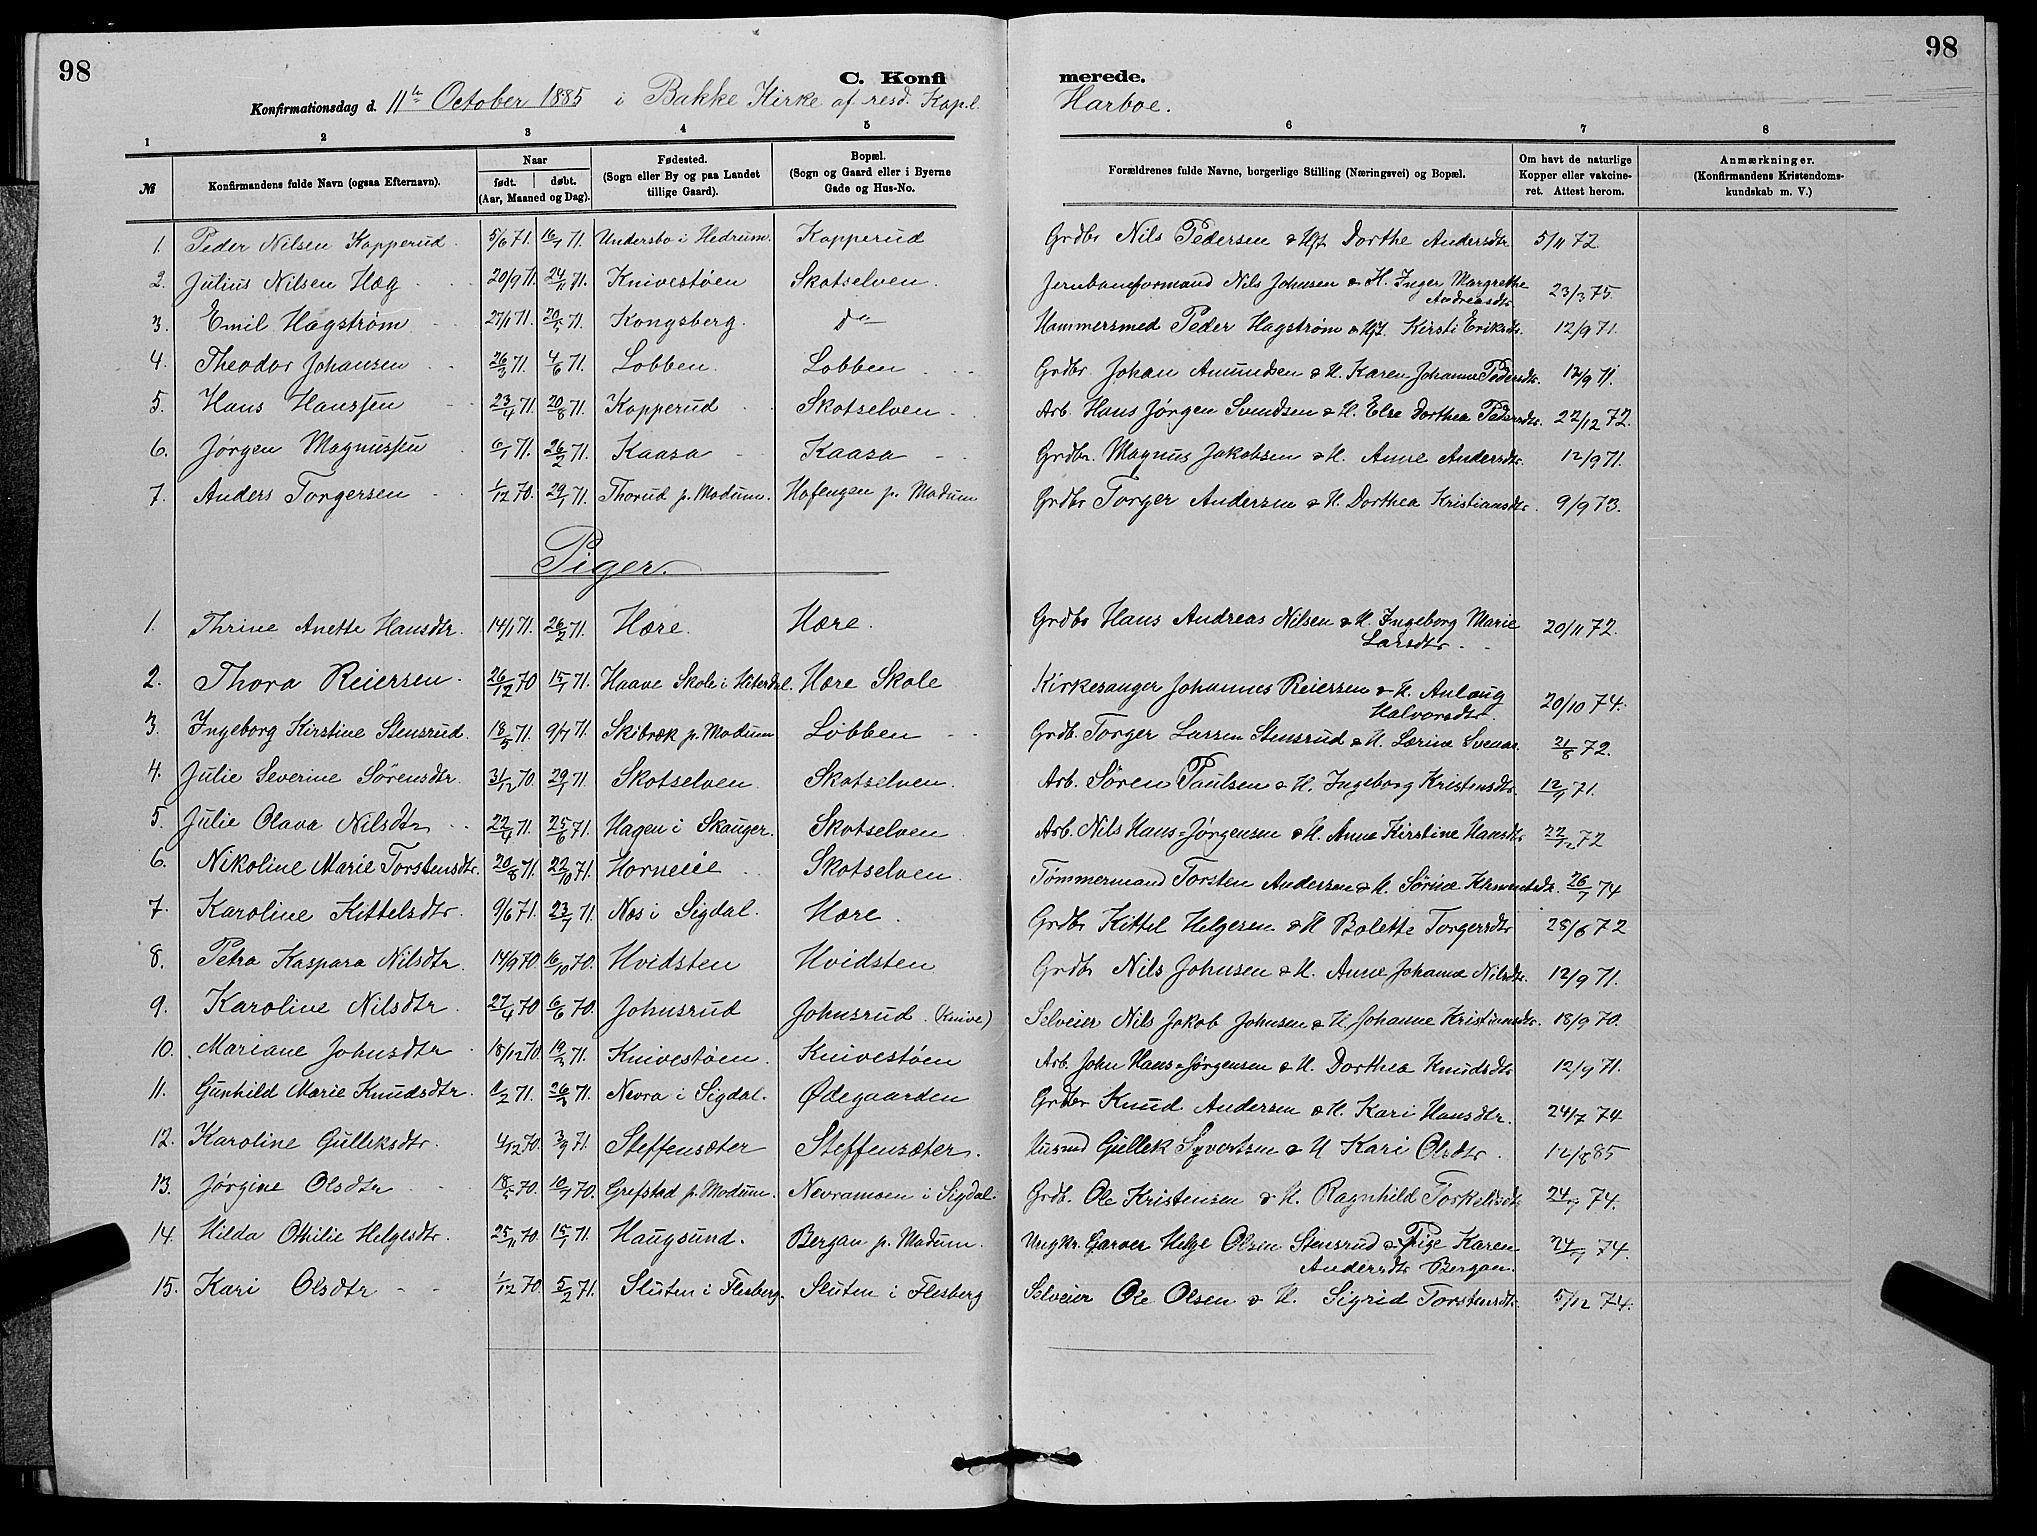 98
98
C. Konfi
merede.
Konfirmationsdag d. 11te October 1885 i Bakke Kirke af resd. Kapl. Harboe.
1 2 3 4 5 6 7 8
№ Konfirmandens fulde Navn (ogsaa Efternavn). Naar født. døbt. (Aar, Maaned og Dag). Fødested. (Sogn eller By og paa Landet tillige Gaard). Bopæl. (Sogn og Gaard eller i Byerne Gade og Hus-No. Forældrenes fulde Navne, borgerlige Stilling (Næringsvei) og Bopæl. Om havt de naturlige Kopper eller vakcineret. Attest herom. Anmærkninger. (Konfirmandens Kristendomskundskab m. V.)
1. Peder Nilsen Kopperud. 5/6 71. 16/7 71. Undersbo i Hedrum. Kopperud Grdbr Nils Pedersen & Hst. Dorthe Andersdtr. 5/11 72.
2. Julius Nilsen Hæg 20/9 71. 24/11 71. Knivestøen Skotselven. Jernbaneformand Nils Johnsen & H. Inger Margrethe Andreasdtr 23/3 75.
3. Emil Hagstrøm 27/1 71. 20/5 71. Kongsberg. do Hammersmed Peder Hagstrøm & Hst. Kirsti Eriksdtr. 12/9 71.
4. Theodor Johansen 26/3 71. 4/6 71. Lobben. Lobben Grdbr. Johan Amundsen & H. Karen Johanne Pedersdtr. 12/9 71.
5. Hans Hanssen 23/4 71. 20/8 71. Kopperud Skotselven Arb. Hans Jørgen Svendsen & H. Else Dorthea Pedersdtr. 22/12 72.
6. Jørgen Magnussen 6/1 71. 26/2 71. Kaasa Kaasa Grdbr. Magnus Jakobsen & H. Anne Andersdtr. 12/9 71.
7. Anders Torgersen 1/12 70. 29/1 71. Thorud p. Modum. Hofengen p. Modum Grdbr Torger Andersen & H. Dorthea Kristiansdtr. 9/9 73.
Piger.
1. Thrine Anette Hansdtr. 14/1 71. 26/2 71. Hære. Hære. Grdbr Hans Andreas Nilsen & H. Ingeborg Marie Larsdtr. 20/11 72.
2. Thora Reiersen. 26/12 70 15/1 71. Haave Skole i Hiterdal. Hære Skole Kirkesanger Johannes Reiersen & H. Anlaug Halvorsdtr. 20/10 74.
3. Ingeborg Kirstine Stensrud. 18/5 71. 9/7 71. Skibræk p. Modum Lobben Grdb. Torger Larsen Stensrud & H. Lorine 21/8 72.
4. Julie Severine Sørensdtr. 31/12 70. 29/1 71. Skotselven. Skotselven. Arb. Søren Paulsen & H. Ingeborg Kristensdtr. 12/9 71.
5. Julie Olava Nilsdtr 22/4 71. 25/6 71. Hagen i Skauger. Skotselven Arb. Nils Hans=Jørgensen & H. Anne Kirstine Hansdtr 22/12 72
6. Nikoline Marie Torstensdtr. 20/8 71. 22/10 71. Horneie Skotselven. Tømmermand Torsten Andersen & H. Sørine Klementsdtr. 26/7 74
7. Karoline Kittelsdtr. 9/6 71. 23/7 71. Næs i Sigdal. Hære. Grdbr Kittel Helgesen & H Bolette Torgersdtr 28/6 72
8. Petra Kaspara Nilsdtr. 14/9 70. 16/10 70. Hvidsten Hvidsten Grdbr Nils Johnsen & H. Anne Johanne Nilsdtr. 12/9 71.
9. Karoline Nilsdtr 27/4 70 6/6 70. Johnsrud Johnsrud. (Knive) Selveier Nils Jakob Johnsen & H. Johanne Kristiansdtr. 18/9 70.
10. Mariane Johnsdtr 18/12 70. 19/3 71. Knivestøen. Knivestøen Arb. John Hans=Jørgensen & H. Dorthea Knudsdtr 12/9 71.
11. Gunhild Marie Knudsdtr. 6/2 71. 26/3 71. Nevra i Sigdal. Ødegaarden Grdbr Knud Andersen & H. Kari Hansdtr. 24/7 74
12. Karoline Gulleksdtr. 4/12 70. 3/9 71. Steffensæter Steffensæter. Husmd Gullek Syvertsen & H Kari Olsdtr. 12/8 85
13. Jørgine Olsdtr 18/5 70. 10/7 70. Grefstad p. Modum. Nevramoen i Sigdal. Grdb. Ole Kristensen & H. Ragnhild Torkelsdtr 24/7 74.
14. Hilda Othilie Helgesdtr. 25/11 70. 15/1 71. Haugsund. Bergan p. Modum. Ungkr. Garver Helge Olsen Stensrud & Pige Karen Andersdtr Bergan. 24/7 74.
15. Kari Olsdtr 1/12 70. 5/2 71. Sluten i Flesberg. Sluten i Flesberg Selveier Ole Olsen & H. Sigrid Torstensdtr. 5/12 74.